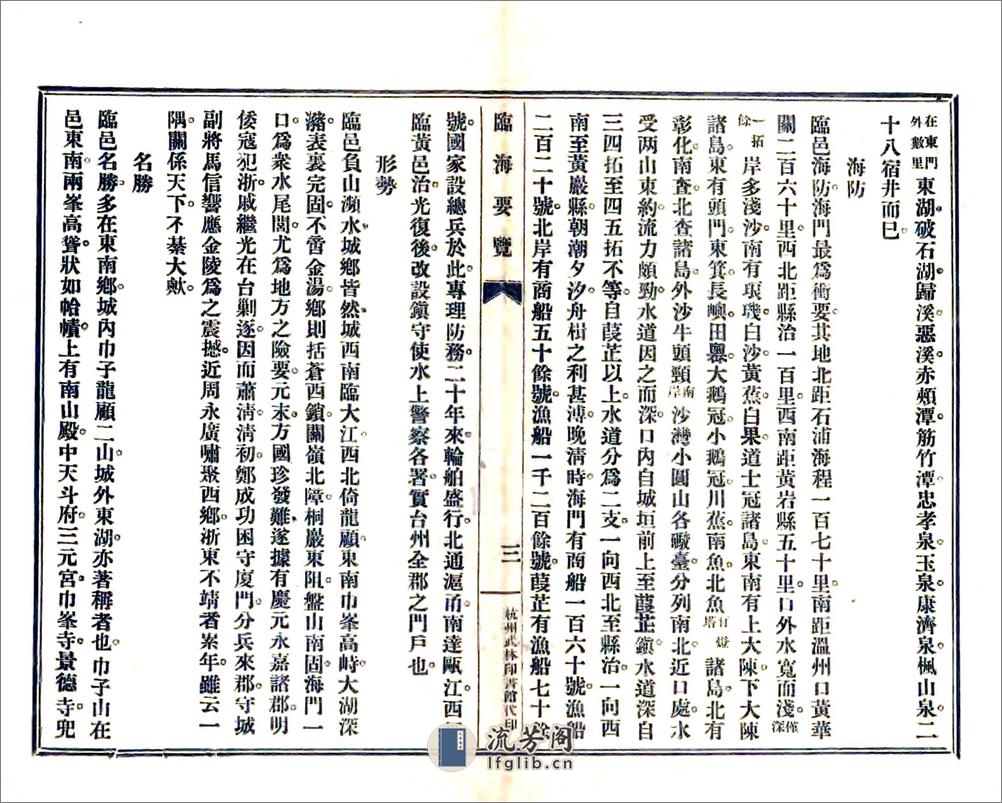 在東門外數里東湖破石湖歸溪惡溪赤頰潭筋竹潭忠孝泉玉泉康濟泉楓山泉二
十八宿井而已
海防
臨邑海防海門最爲衝要其地北距石浦海程一百七十里南距溫州口黃華
關二百六十里西北距縣治一百里西南距黃岩縣五十里口外水寬而淺僅深
一拓餘岸多淺沙南有琅璣白沙黃蕉白果道士冠諸島東南有上大陳下大陳
諸島東有頭門東箕長嶼田嶴大鵝冠小鵝冠川蕉南魚北魚有燈塔諸島北有
彰化南查北查諸島外沙牛頭頸南岸沙灣小圓山各礮臺分列南北近口處水
受两山東約流力頗勁水道因之而深口內自城垣前上至葭芷鎭水道深自
三四拓至四五拓不等自葭芷以上水道分爲二支一向西北至縣治一向西
南至黃巖縣朝潮夕汐舟楫之利甚溥晚淸時海門有商船一百六十號漁船
二百二十號北岸有商船五十餘號漁船一千二百餘號葭芷有漁船七十餘
臨海要覽
三
杭州武林印書館代印
號國家設總兵於此專理防務二十年來輪舶盛行北通滬甬南達甌江西
臨黃邑治光復後改設鎭守使水上警察各署實台州全郡之門戶也
形勢
臨邑負山瀕水城鄉皆然城西南臨大江西北倚龍顧東南巾峯高峙大湖深
瀦表裏完固不啻金湯鄉則括蒼西鎖關嶺北障桐巖東阻盤山南固海門一
口爲衆水尾閭尤爲地方之險要元末方國珍發難遂據有慶元永嘉諸郡明
倭寇犯浙戚繼光在台剿逐因而蕭淸淸初鄭成功困守厦門分兵來郡守城
副將馬信響應金陵爲之震撼近周永廣嘯聚西鄉浙東不靖者累年雖云一
隅關係天下不綦大歟
名勝
臨邑名勝多在東南鄉城內巾子龍顧二山城外東湖亦著稱者也巾子山在
邑東南兩峯高聳狀如帢幘上有南山殿中天斗府三元宮巾峯寺景德寺兜
流芳阁
lfglib.cn